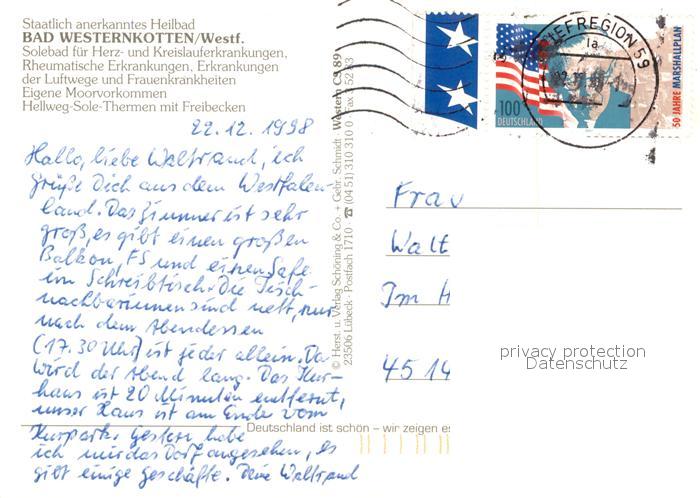 Staatlich anerkanntes Heilbad
BAD WESTERNKOTTEN/Westf.
Solebad für Herz- und Kreislauferkrankungen,
Rheumatische Erkrankungen, Erkrankungen
der Luftwege und Frauenkrankheiten
Eigene Moorvorkommen
Hellweg-Sole-Thermen mit Freibecken
22.12.1998
Hallo, liebe Waltraud, ich
grüße Dich aus dem Westfalen-
land. Das Zimmer ist sehr
groß, es gibt einen großen
Balkon, FS und einen Safe
im Schreibtisch. Die Tisch-
nachbarinnen sind nett, nur
nach dem Abendessen
(17.30 Uhr) ist jeder allein. Da
wird der Abend lang. Das Kur-
haus ist 20 Minuten entfernt,
unser Haus ist am Ende vom
Kurpark. Gestern habe
ich mir das Dorf angesehen, es
gibt einige Geschäfte. Deine Waltraud
© Herst. u. Verlag Schöning & Co. + Gebr. Schmidt
23506 Lübeck · Postfach 1710 · ☎ (04 51) 310 310 0
Deutschland ist schön – wir zeigen es
BRIEFREGION 59
1a
100
DEUTSCHLAND
50 JAHRE MARSHALLPLAN
Frau
Walt
Im H
45 14
privacy protection
Datenschutz